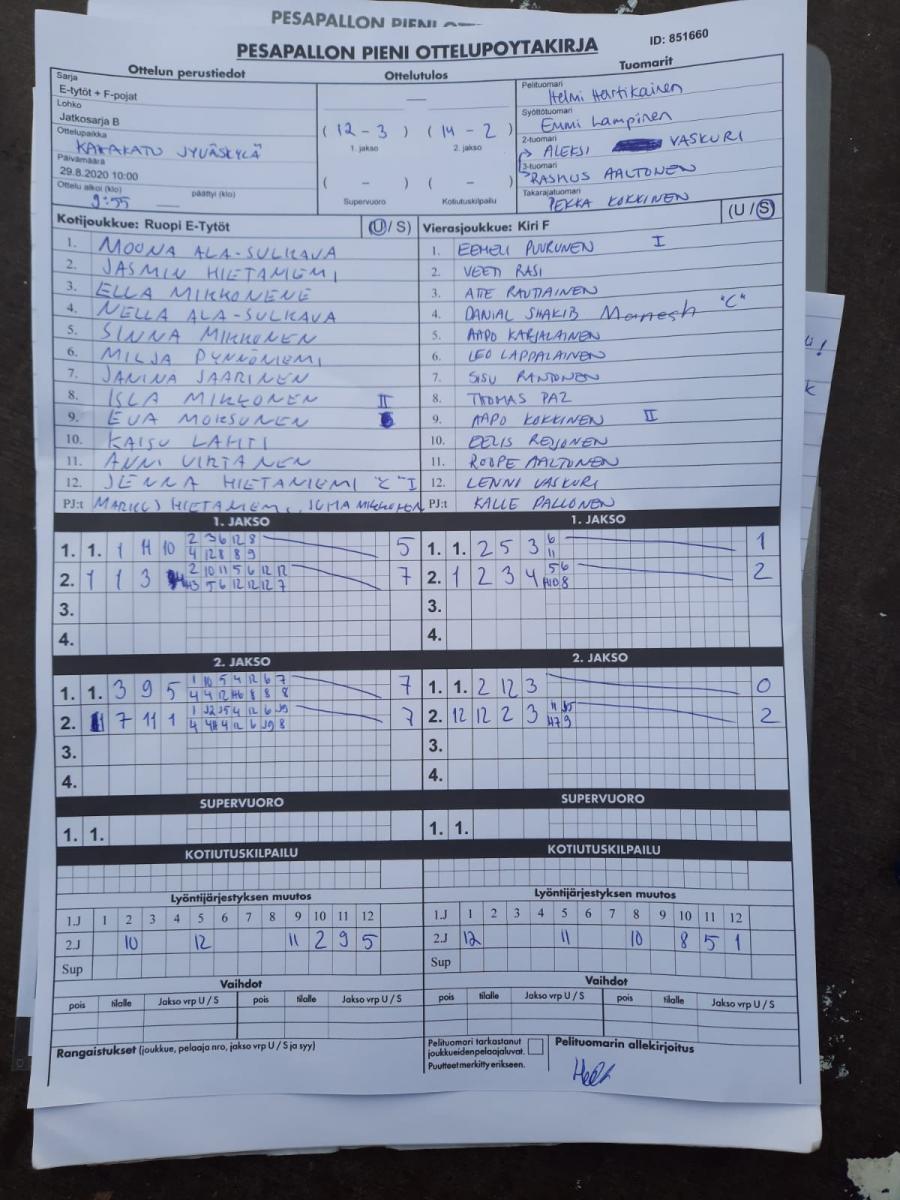 PESAPALLON PIENI
PESAPALLON PIENI OTTELUPOYTAKIRJA
ID: 851660
Ottelun perustiedot
Ottelutulos
Tuomarit
Sarja
E-tytöt + F-pojat
Lohko
Jatkosarja B
Ottelupaikka
KANKAKATU JYVÄSKYLÄ
Päivämäärä
29.8.2020 10:00
Ottelu alkoi (klo) 9:55 päättyi (klo)
( 12 - 3 ) ( 14 - 2 )
1. jakso 2. jakso
( - ) ( - )
Supervuoro Kotiutuskilpailu
Pelituomari
Helmi Hartikainen
Syöttötuomari
Emmi Lampinen
2-tuomari
ALEKSI VASKURI
3-tuomari
RASMUS AALTONEN
Takarajatuomari
PEKKA KOKKINEN
Kotijoukkue: Ruopi E-Tytöt (U / S)
1. MOONA ALA-SULKAVA
2. JASMIN HIETANIEMI
3. ELLA MIKKONENE
4. NELLA ALA-SULKAVA
5. SINNA MIKKONEN
6. MILJA PYNNÖNIEMI
7. JANINA JAARINEN
8. ISLA MIKKONEN II
9. EVA MOKSUNEN
10. KAISU LAHTI
11. ANNI VIRTANEN
12. JENNA HIETANIEMI "C" I
PJ:t MARKUS HIETANIEMI, JUHA MIKKONEN
Vierasjoukkue: Kiri F (U / S)
1. EEMELI PUURUNEN I
2. VEETI RASI
3. ATTE RAUTIAINEN
4. DANIAL SHAKIB Manesh "C"
5. AAPO KARJALAINEN
6. LEO LAPPALAINEN
7. SISU RANTONEN
8. THOMAS PAZ
9. AAPO KOKKINEN II
10. EELIS REIJONEN
11. ROOPE AALTONEN
12. LENNI VASKURI
PJ:t KALLE PALLONEN
1. JAKSO 1. JAKSO
1. 1. 1 11 10 2 3 6 12 8 5
4 12 8 8 9
2. 1 1 3 2 10 11 5 6 12 12 7
5 6 12 12 12 7
3.
4.
1. 1. 2 5 3 6 1
11
2. 1 2 3 4 5 6 2
3.
4.
2. JAKSO 2. JAKSO
1. 1. 3 9 5 1 10 5 4 12 6 7 7
4 4 12 8 8 8
2. 7 11 1 7
3.
4.
1. 1. 2 12 3 0
2. 12 12 2 3 2
3.
4.
SUPERVUORO SUPERVUORO
1. 1. 1. 1.
KOTIUTUSKILPAILU KOTIUTUSKILPAILU
Lyöntijärjestyksen muutos
1.J 1 2 3 4 5 6 7 8 9 10 11 12
2.J 10 12 11 2 9 5
Sup
Lyöntijärjestyksen muutos
1.J 1 2 3 4 5 6 7 8 9 10 11 12
2.J 12 11 10 8 5 1
Sup
Vaihdot
pois tilalle Jakso vrp U / S pois tilalle Jakso vrp U / S
Vaihdot
pois tilalle Jakso vrp U / S pois tilalle Jakso vrp U / S
Rangaistukset (joukkue, pelaaja nro, jakso vrp U / S ja syy)
Pelituomari tarkastanut
joukkueidenpelaajaluvat.
Puutteet merkitty erikseen.
Pelituomarin allekirjoitus